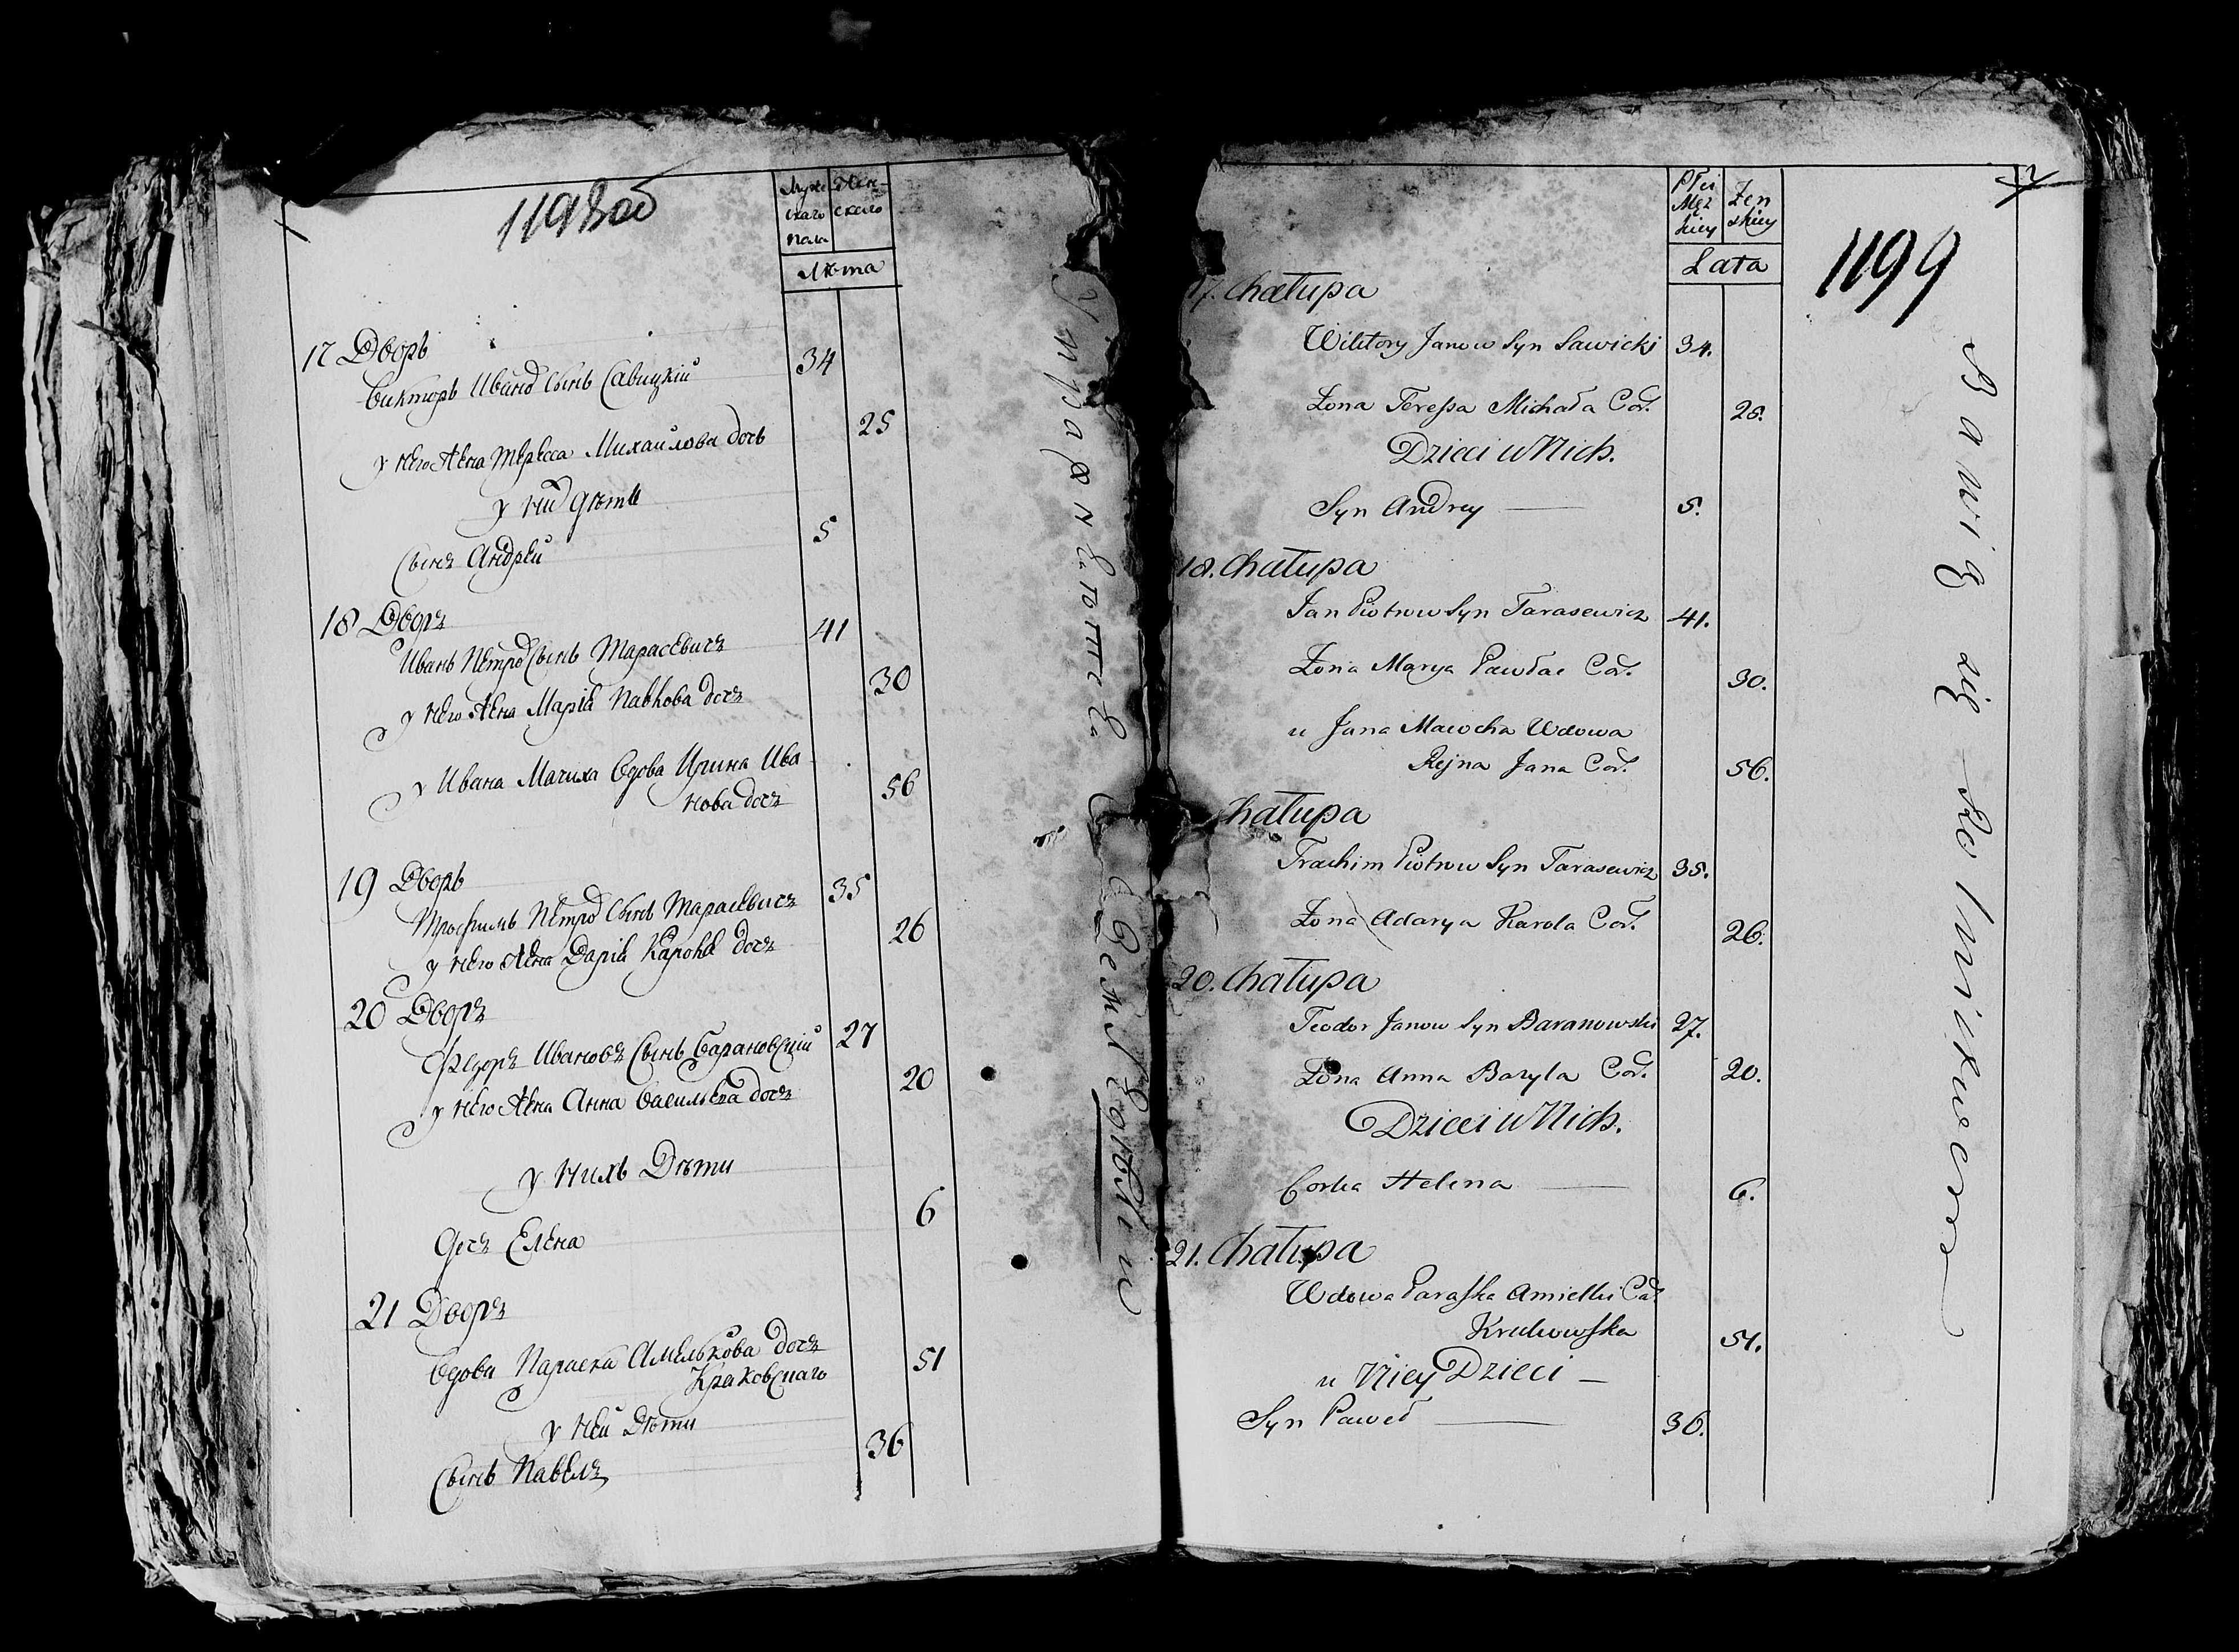 1198об
Муже-
скаго
пола
Жен-
скаго
Лѣта
17 Дворъ
Викторъ Иванов Сынъ Савицкій 34
у него Жена Тересса Михайлова дочь 25
у них дѣти
Сынъ Андрей 5
18 Дворъ
Иванъ Петров Сынъ Тарасевичъ 41
у него Жена Марія Павлова дочъ 30
у Ивана Мачиха вдова Ирина Ива-
нова дочъ 56
19 Дворъ
Трофимъ Петров Сынъ Тарасевичъ 35
у него Жена Дарія Кароля дочъ 26
20 Дворъ
Федоръ Ивановъ Сынъ Барановскій 27
у него Жена Анна Васильева дочъ 20
у нихъ Дѣти
дочъ Елена 6
21 Дворъ
вдова Параска Амелькова дочъ 51
Краковскаго
у ней Дѣти
Сынъ Павелъ 36
Płci
Męz
kiey
Żen
skiey
Lata
1199
17. Chałupa
Wiktory Janow Syn Sawicki 34.
Żona Teressa Michała Cor. 25.
Dzieci u Nich.
Syn Andrey 5.
18. Chałupa
Jan Piotrow Syn Tarasewicz 41.
Żona Marya Pawła Cor. 30.
u Jana Macocha Wdowa
Rejna Jana Cor. 56.
Chałupa
Trachim Piotrow Syn Tarasewicz 35.
Żona Adarya Karola Cor. 26.
20. Chałupa
Teodor Janow Syn Baranowski 27.
Żona Anna Bazyla Cor. 20.
Dzieci u Nich.
Corka Helena 6.
21. Chałupa
Wdowa Paraska Amielki Cor.
Krukowska 51.
u Niey Dzieci
Syn Paweł 36.